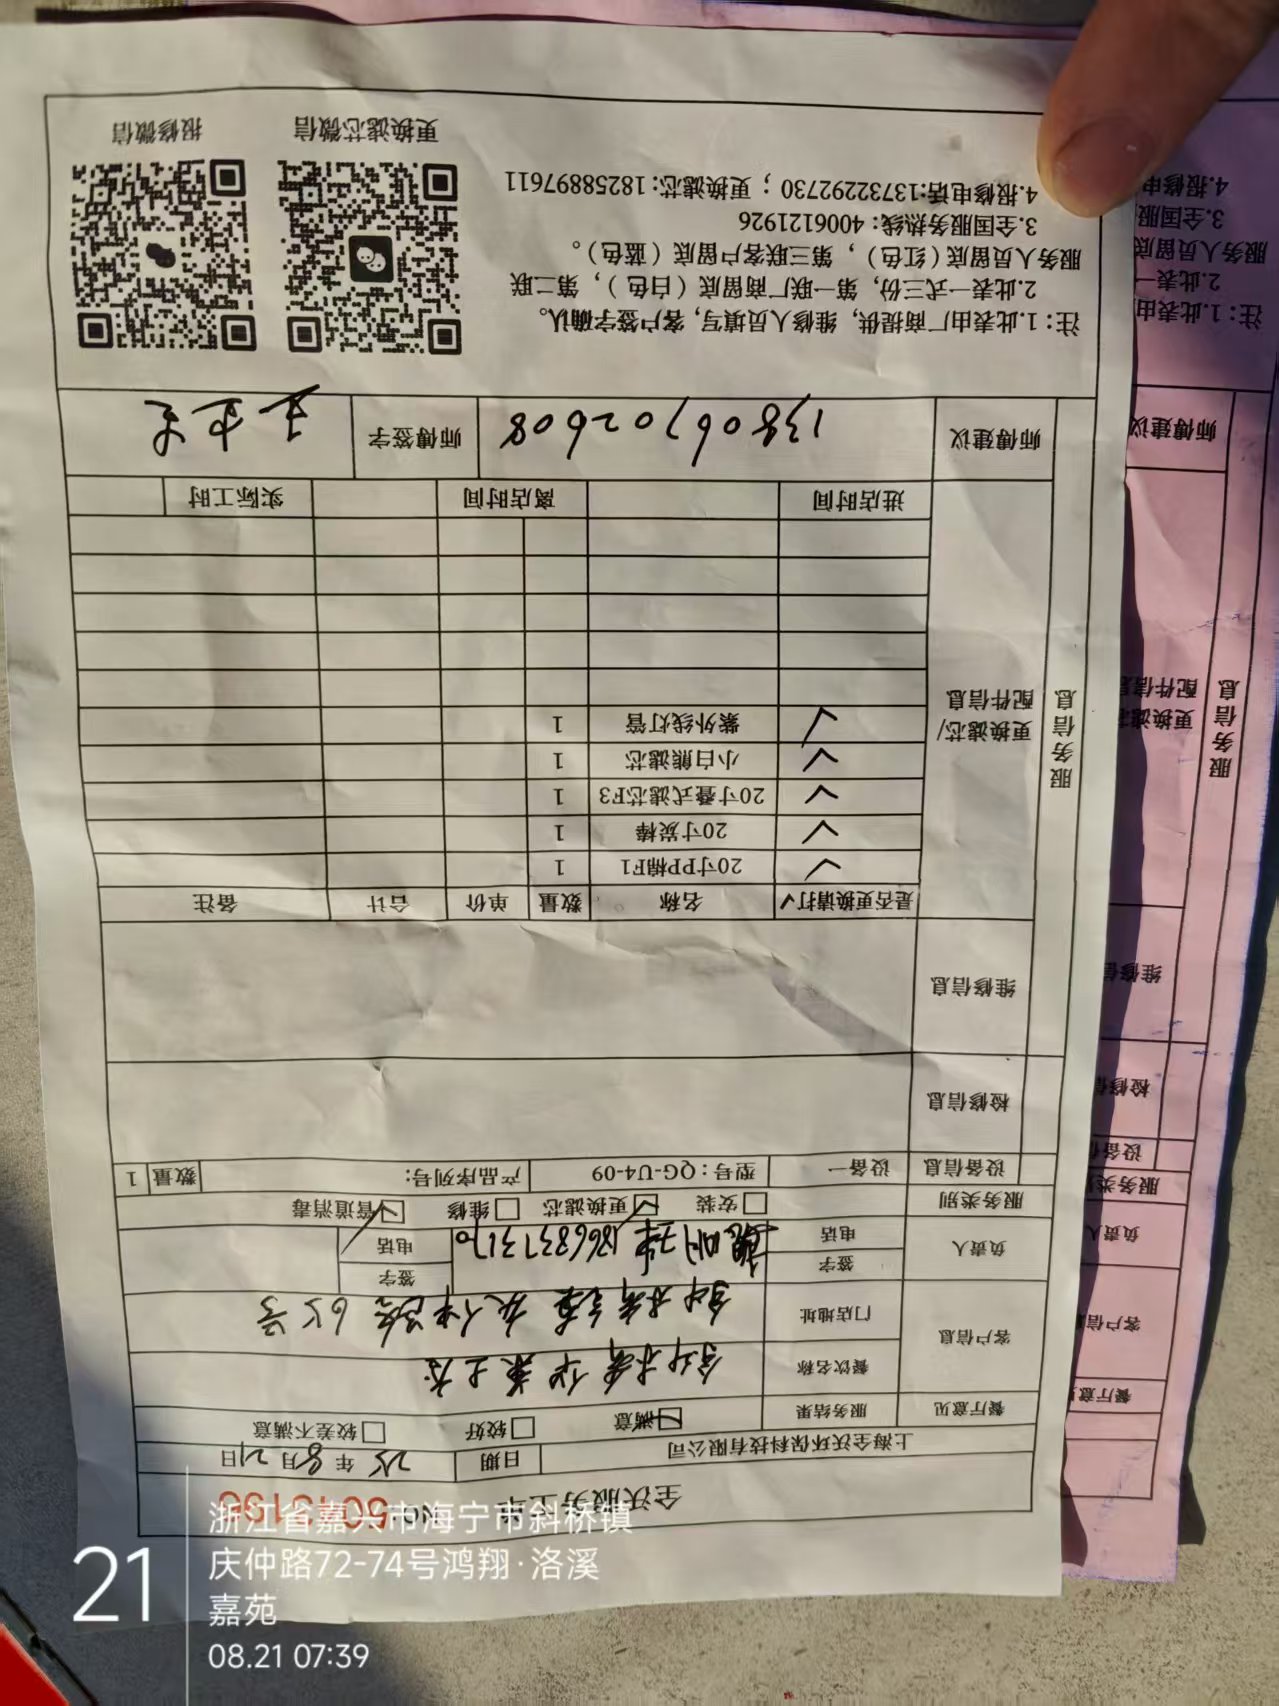 全沃服务工单 NO.
上海全沃环保科技有限公司 日期 25年8月21日
餐厅意见 服务结果 满意 较好 较差不满意
客户信息 餐饮名称
门店地址 65号
负责人 签字 签字
电话 18668373170 电话
服务类别 安装 更换滤芯 维修 管道消毒
设备信息 设备一 型号:QG-U4-09 产品序列号: 数量 1
检修信息
服务信息
维修信息
更换滤芯/配件信息
是否更换请打✓ 名称 数量 单价 合计 备注
✓ 20寸PP棉F1 1
✓ 20寸炭棒 1
✓ 20寸叠式滤芯F3 1
✓ 小白熊滤芯 1
✓ 紫外线灯管 1
进店时间 离店时间 实际工时
师傅建议 13806702608 师傅签字
注:1.此表由厂商提供,维修人员填写,客户签字确认。
2.此表一式三份,第一联厂商留底(白色),第二联
服务人员留底(红色),第三联客户留底(蓝色)。
3.全国服务热线:4006121926
4.报修电话:13732292730;更换滤芯:18258897611
更换滤芯微信 报修微信
餐厅意
客户信
负责人
服务类
设备信
检修
维修信
服务信息
更换滤
配件信息
师傅建议
注:1.此表由
2.此表一
服务人员留底
3.全国服
4.报修电
21
浙江省嘉兴市海宁市斜桥镇
庆仲路72-74号鸿翔·洛溪
嘉苑
08.21 07:39